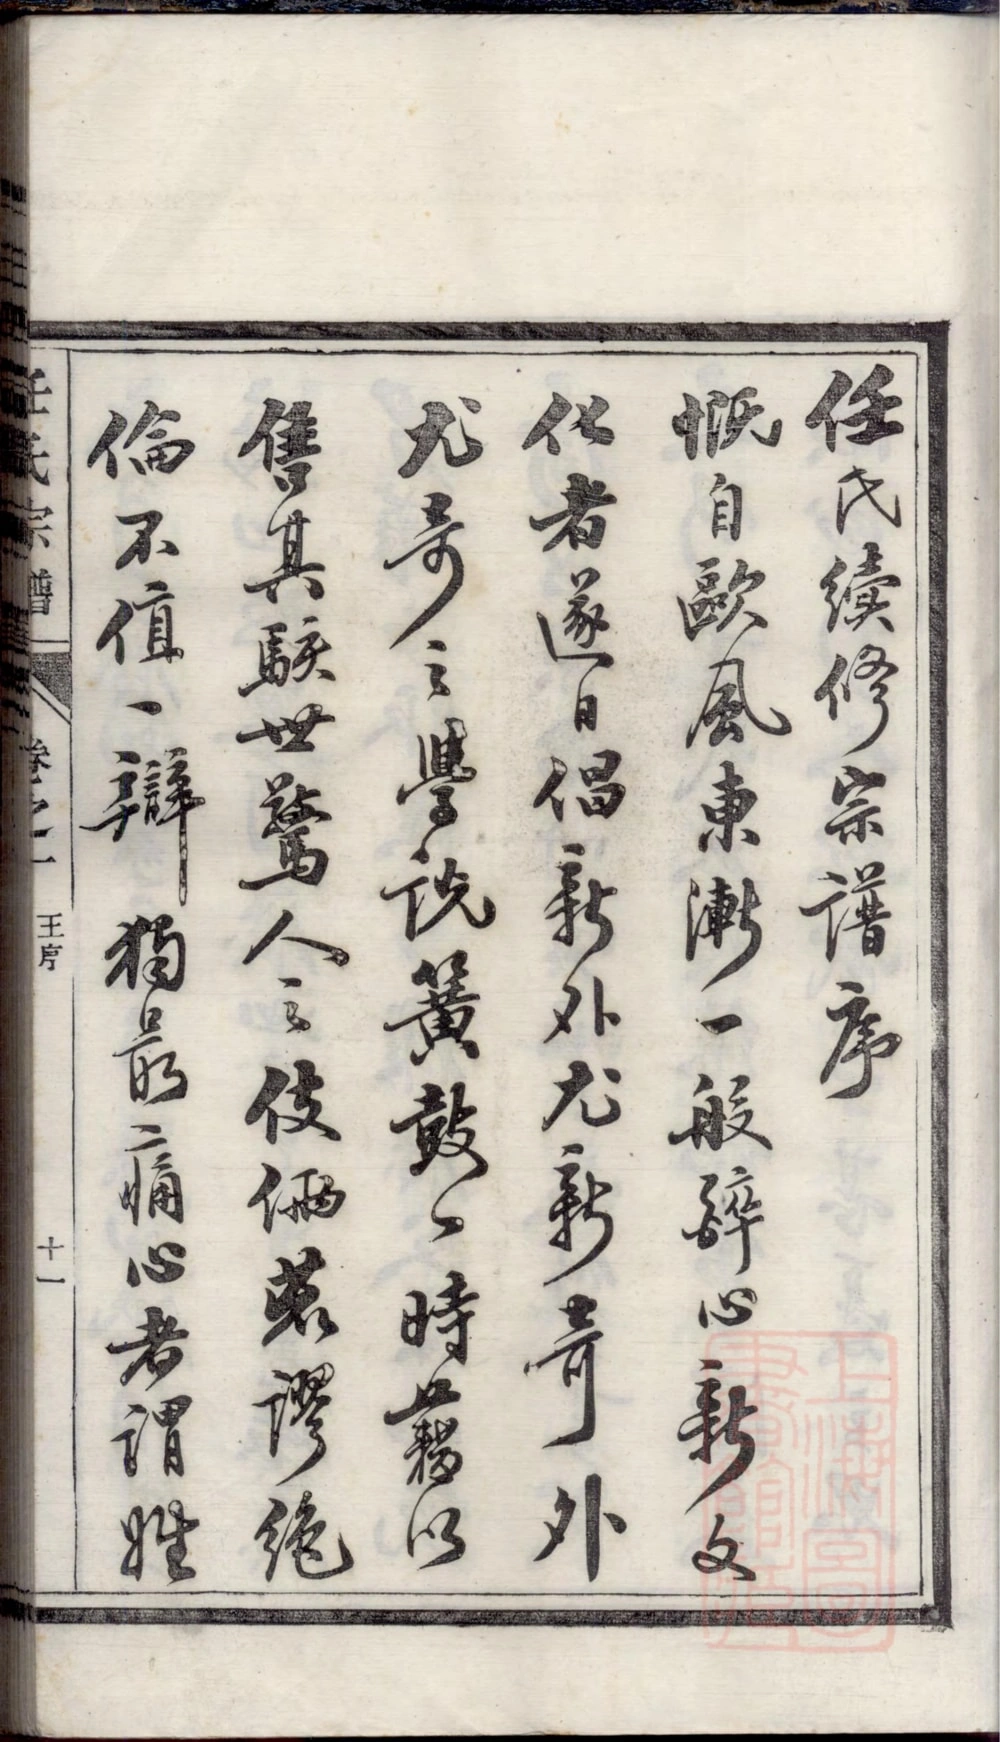 任氏續修宗譜序
慨自歐風東漸一般醉心新文
化者遂日倡新外尤新奇外
尤奇之學説簧鼓一時藉以
售其駭世驚人之伎倆荒謬絶
倫不值一辯獨最痛心者謂姓
任氏宗譜
卷之一
王序
十一
上海圖書館藏